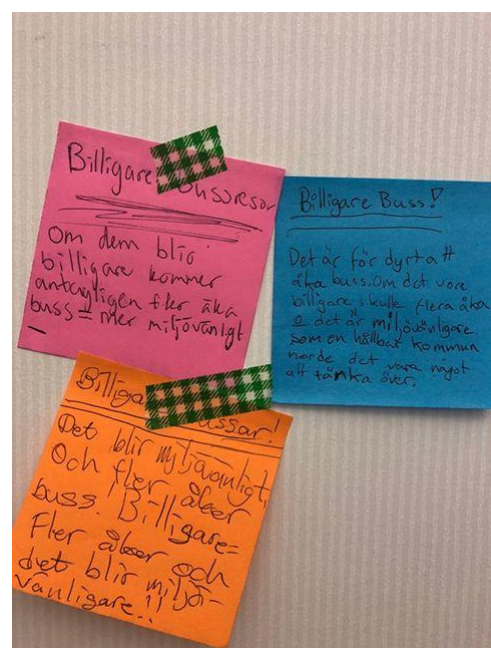 Billigare bussresor
Om dem blir
billigare kommer
antagligen fler åka
buss = mer miljövänligt
Billigare Buss!
Det är för dyrt att
åka buss. Om det vore
billigare skulle flera åka
o det är miljövänligare
som en hållbar kommun
borde det vara något
att tänka över.
Billiga ssar!
Det blir miljövänligt,
Och fler åker
buss! Billigare=
Fler åker och
det blir miljö-
vänligare!!